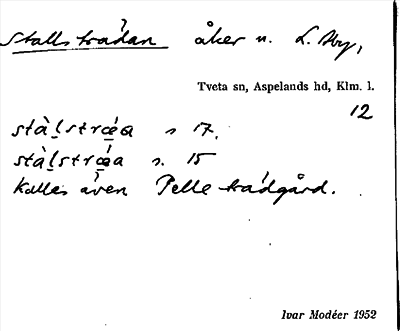 Stallsträdan åker n. L. Aby,
Tveta sn, Aspelands hd, Klm. l.
12
stàlstræ̀a s 17.
stàlstræ̀a s. 15
kallas även Pelle trädgård.
Ivar Modéer 1952